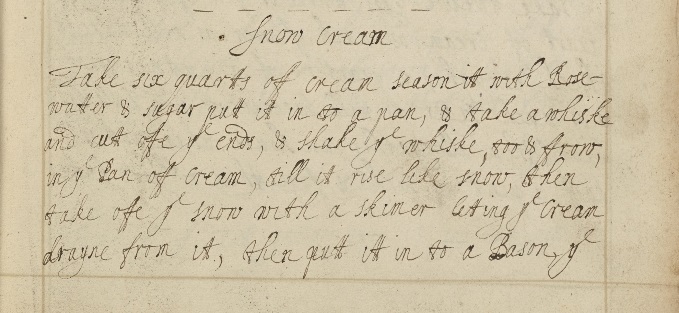 Snow Cream
Take six quarts of cream season itt with Rose-
watter & sugar putt it in to a pan, & take a whiske
and cutt offe yᵉ ends, & shake yᵉ whiske, too & frow,
in yᵉ Pan off Cream, till it rise like snow, then
take offe yᵉ snow with a skimer leting yᵉ Cream
drayne from it, then putt itt in to a Bason, yᵉ